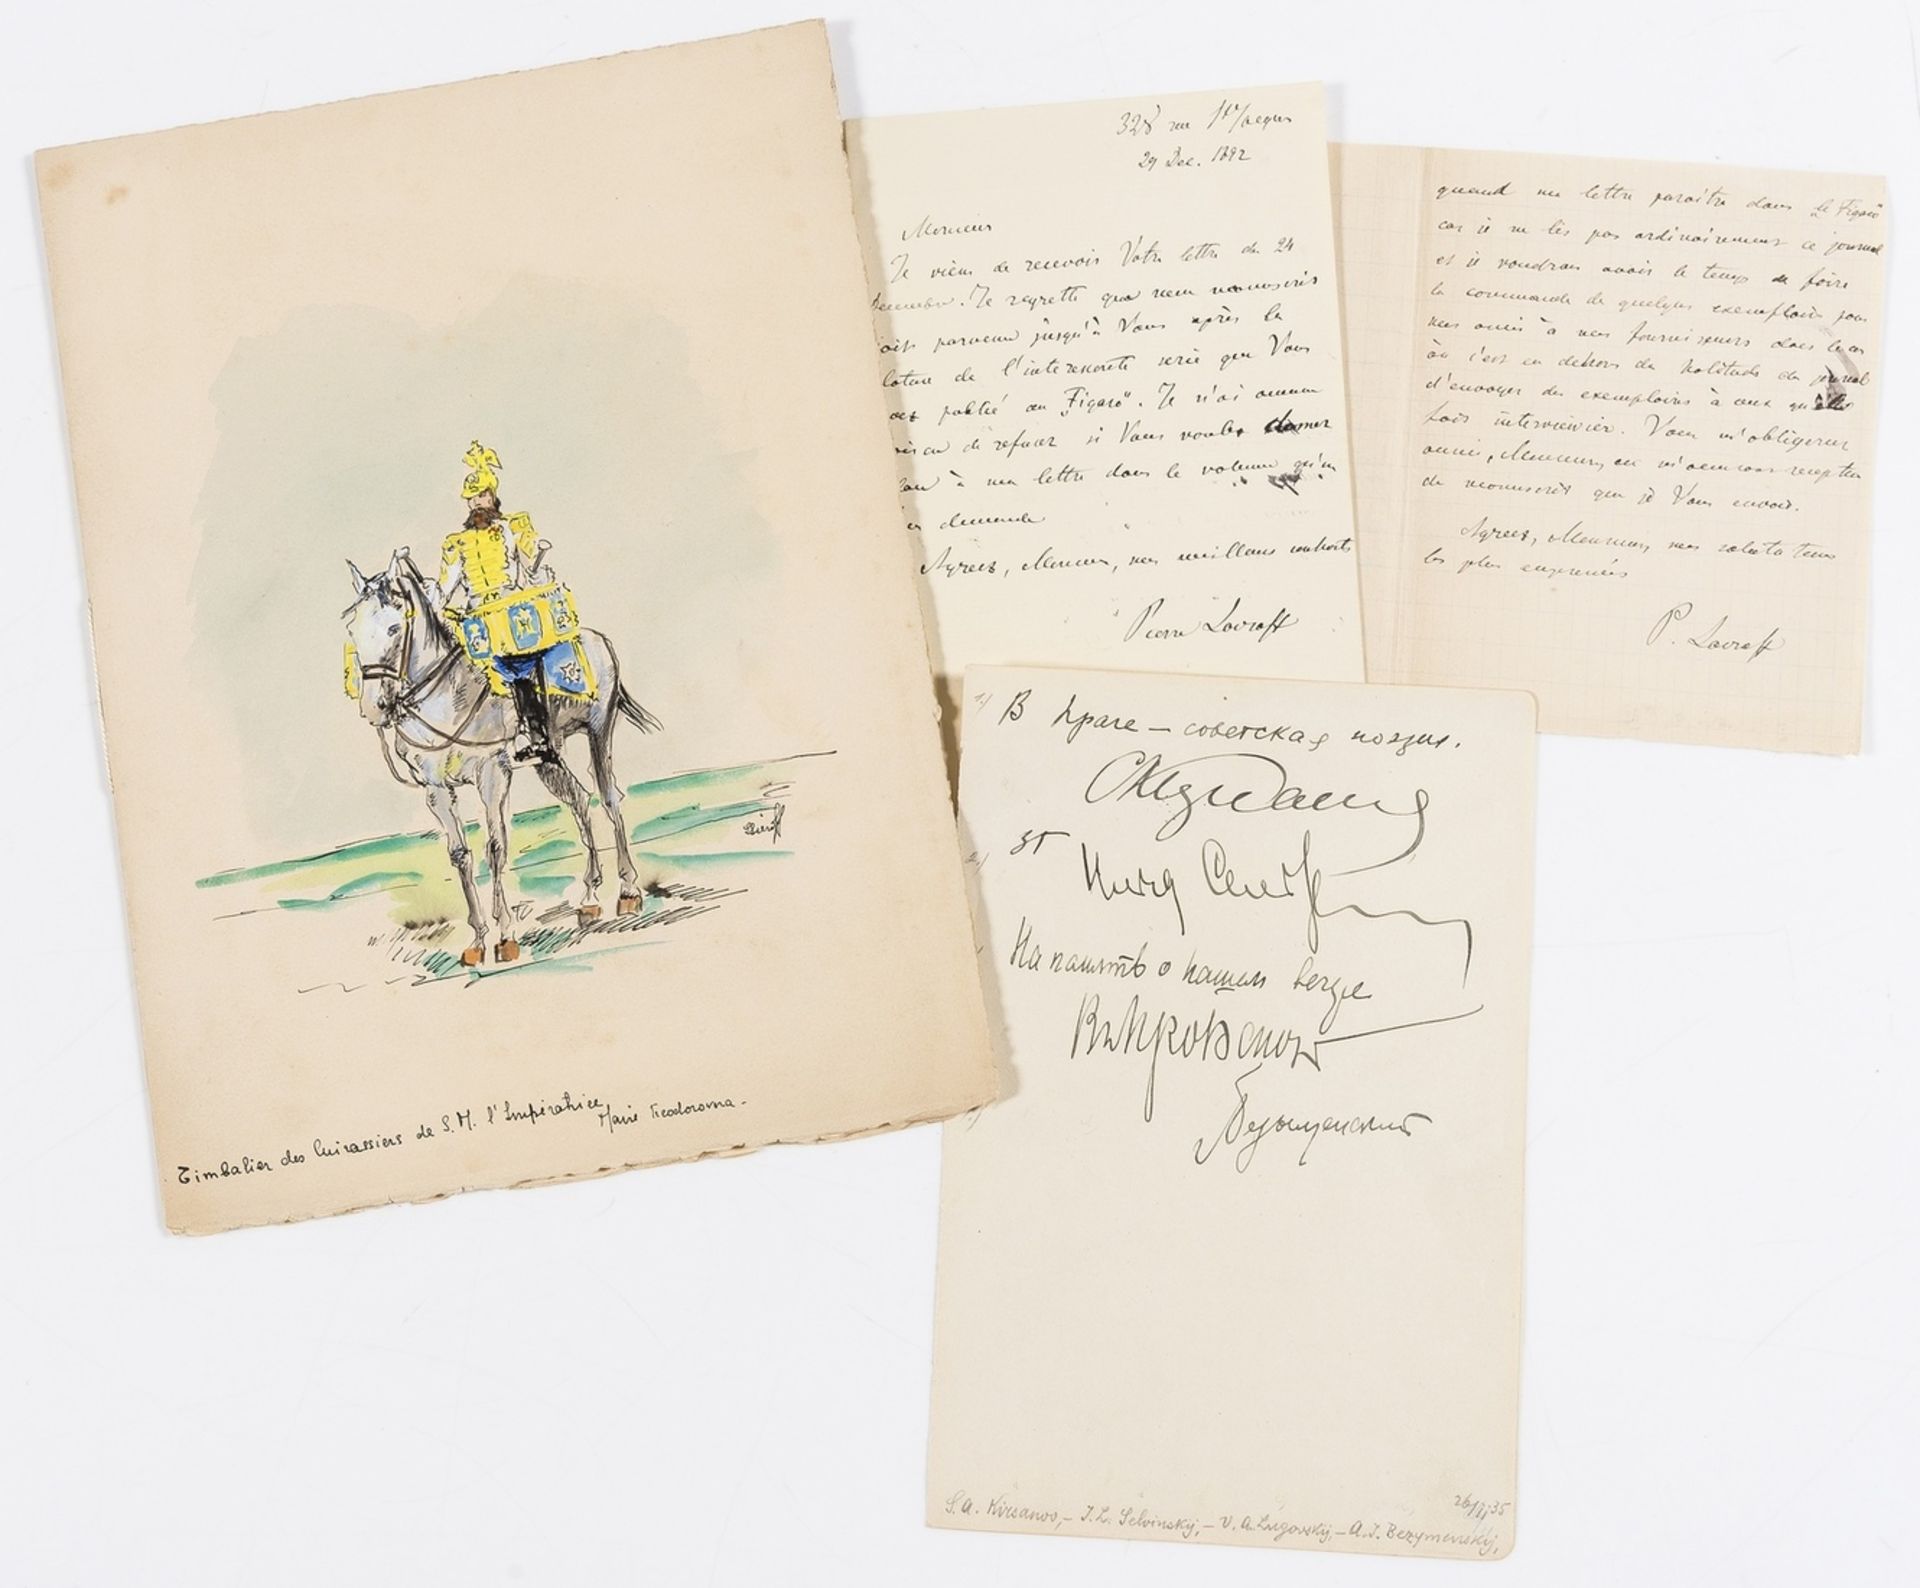 Timbalier des Cuirassiers de S.M. l'Impératrice
Marie Feodorovna -
328 rue St Jacques
29 Dec. 1892
Monsieur
Je viens de recevoir Votre lettre du 24
Decembre. Je regrette que mon manuscrit
soit parvenu jusqu'à Vous après la
de l'interessante serie que Vous
avez publié au „Figaro". Je n'ai aucune
de refuser si Vous voulez donner
à ma lettre dans le volume qu'on
demande
Agreez, Monsieur, mes meilleurs souhaits
Pierre Lavroff
quand ma lettre paraitra dans le „Figaro"
car je ne lis pas ordinairement ce journal
et je voudrais avoir le temps de faire
la commande de quelques exemplaires pour
mes amis à nos fournisseurs dans le cas
où c'est en dehors des habitudes du journal
d'envoyer des exemplaires à ceux
fait interviewer. Vous m'obligerez
aussi, Monsieur, en m'accusant reception
du manuscrit que je Vous envoie.
Agreez, Monsieur, mes salutations
les plus empressées
P. Lavroff
1/ В Праге – советская поэзия.
2/ Илья Сельвин
На память о нашем вечере
Вл Луговской
Безыменский
26/XI 35
S. A. Kirsanov, – I. L. Selvinskij, – V. A. Lugovskij, – A. I. Bezymenskij,